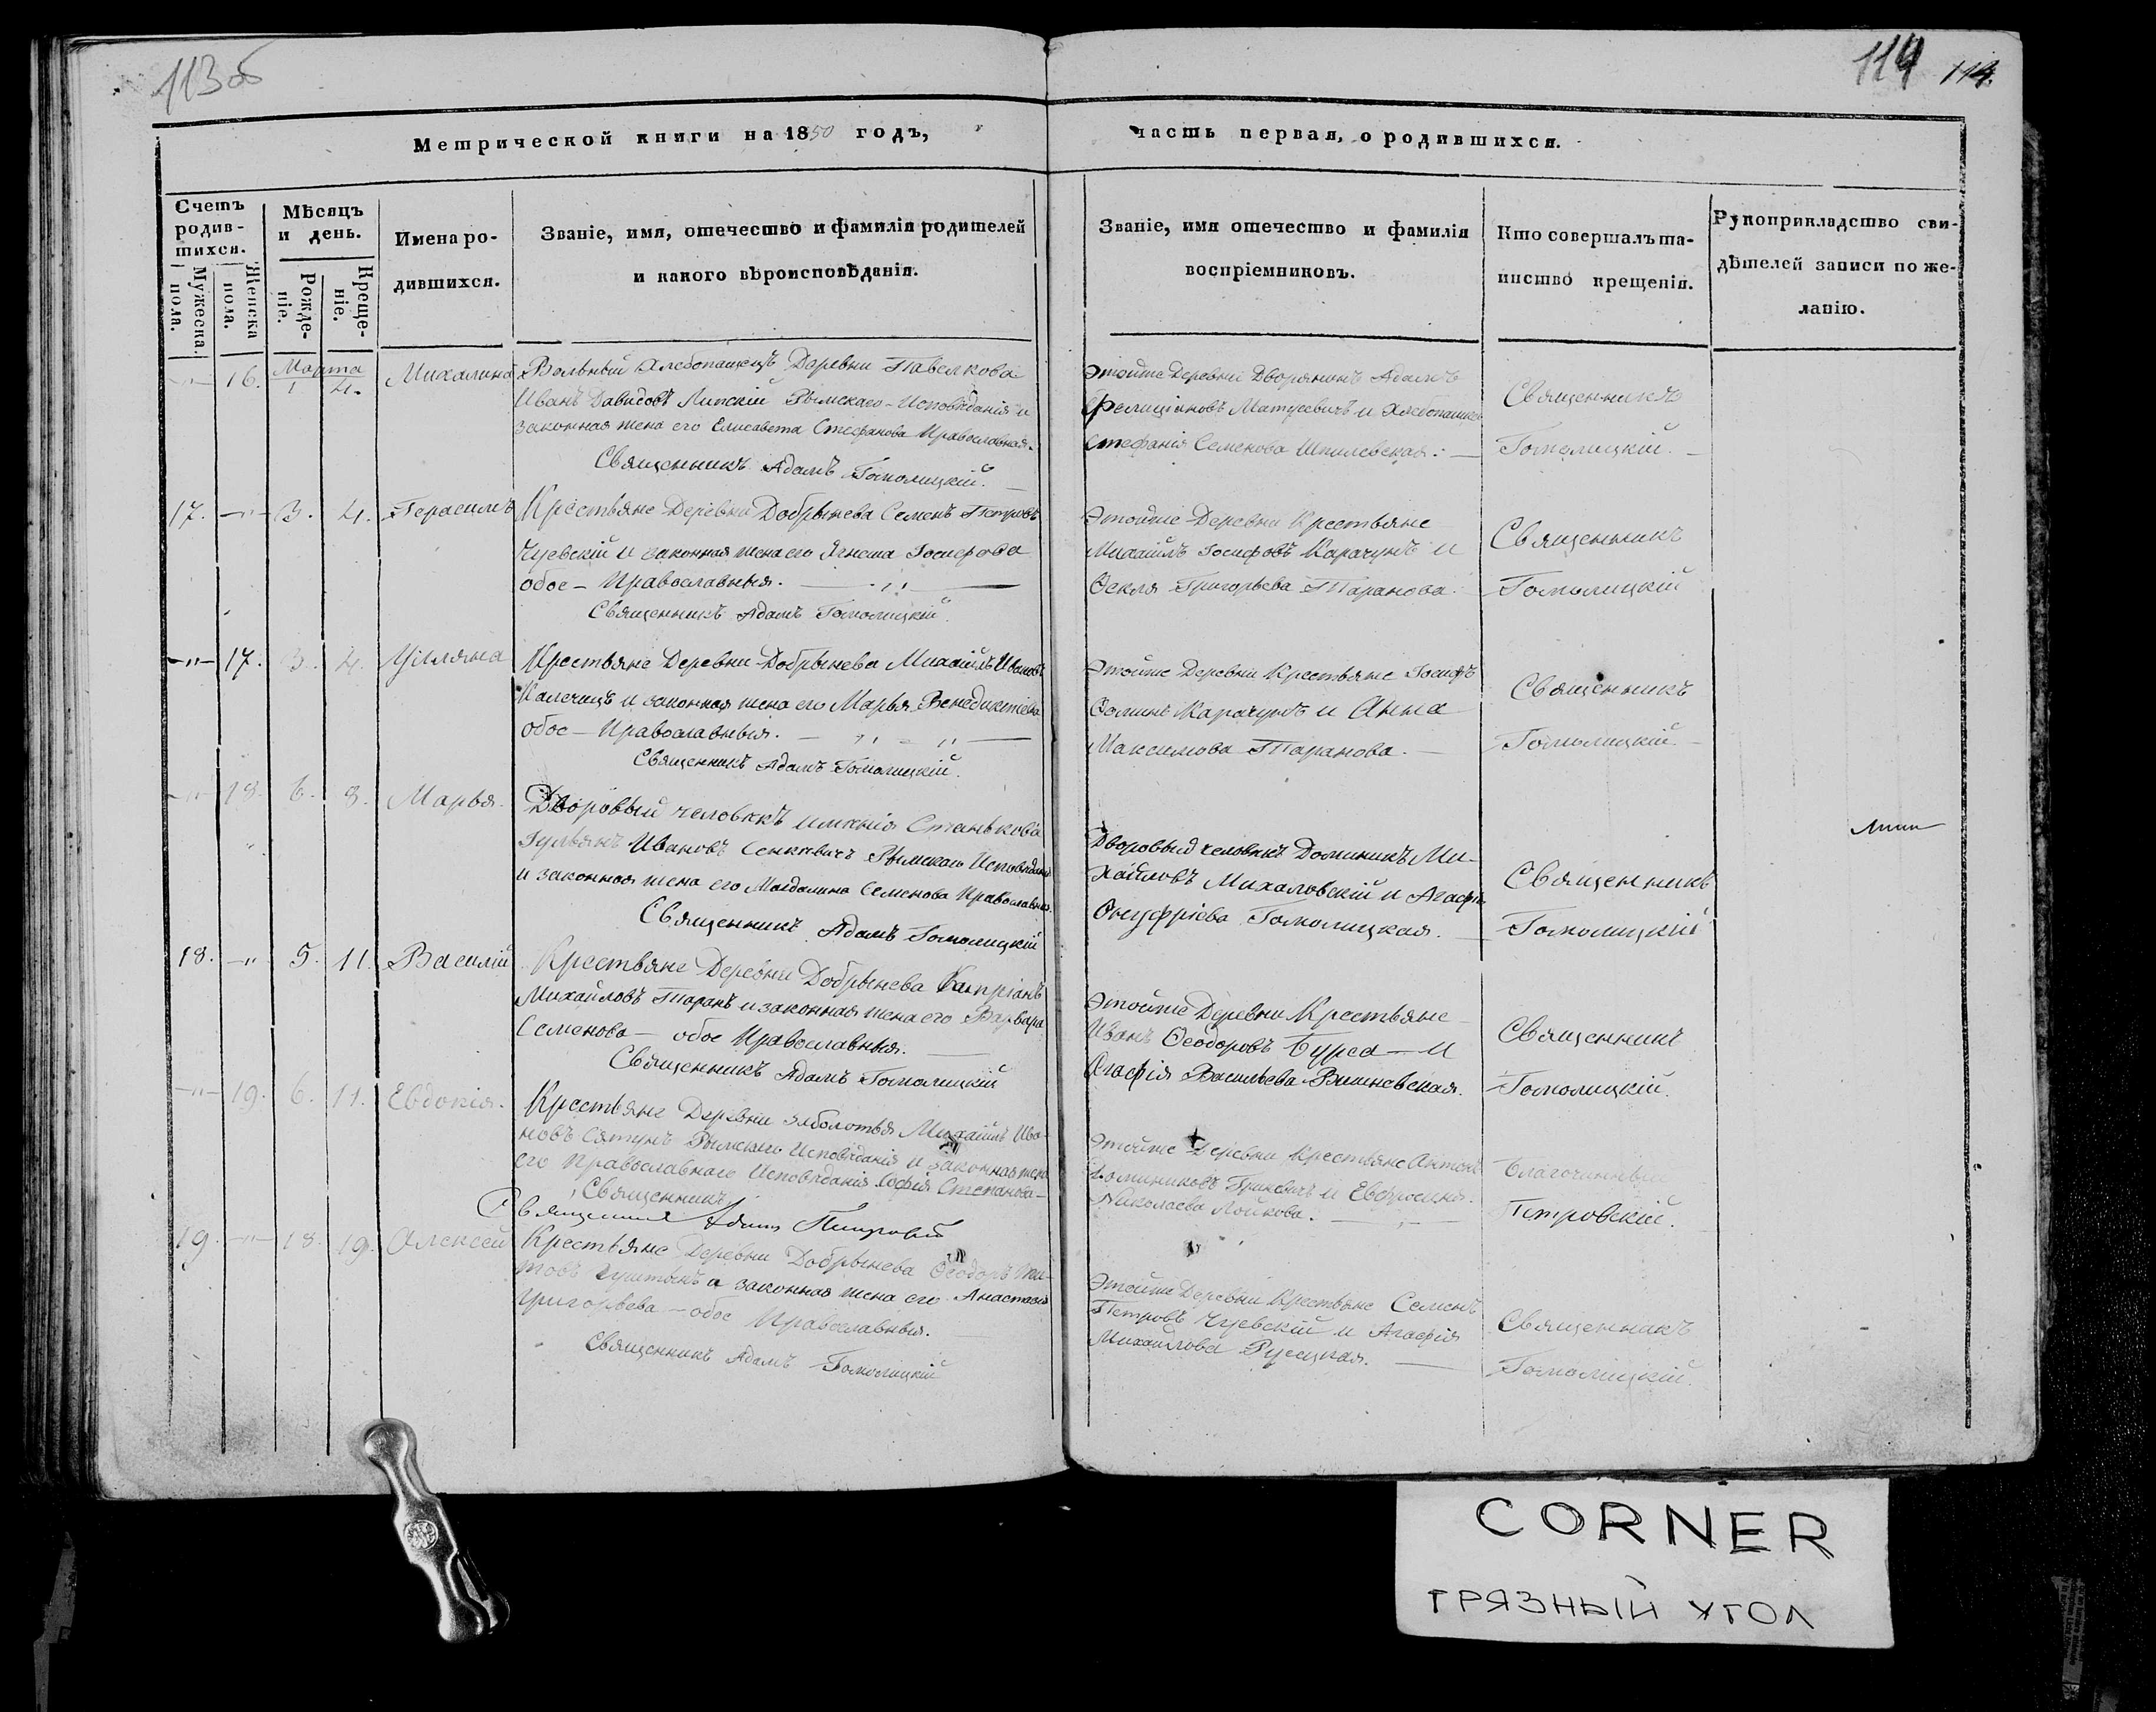 113 об
114 114.
Метрической книги на 1850 годъ,
часть первая, о родившихся.
Счетъ родив-шихся.
Мужеска пола.
Женска пола.
Мѣсяцъ и день.
Рожде-ніе.
Креще-ніе.
Имена ро-
дившихся.
Званіе, имя, отечество и фамилія родителей
и какого вѣроисповѣданія.
Званіе, имя отечество и фамилія
воспріемниковъ.
Кто совершалъ та-
инство крещенія.
Рукоприкладство сви-
дѣтелей записи по же-
ланію.
Марта
-"- 16. 1 4. Михалина
Вольный Хлебопашецъ Деревни Павелкова
Иванъ Давидовъ Липскій Рымскаго-Исповѣданія и
законная жена его Елисавета Стефанова Православная.
Священникъ Адамъ Гомолицкій.
Этойже Деревни Дворянинъ Адамъ
Фелиціяновъ Матусевичъ и
Стефанія Семенова Шпилевская.
Священникъ
Гомолицкій.
17. -"- 3. 4. Герасимъ
Крестьяне Деревни Добрынева Семенъ Петровъ
Чуевскій и законная жена его Ягнеша Іосифова
обое - Православныя.
Священникъ Адамъ Гомолицкій.
Этойже Деревни Крестьяне
Михаилъ Іосифовъ Карачунъ и
Ѳекля Григорьева Таранова.
Священникъ
Гомолицкій
-"- 17. 3. 4. Уіляна
Крестьяне Деревни Добрынева Михаилъ Ивановъ
Калечицъ и законная жена его Марья Венедиктіева
обое - Православныя.
Священникъ Адамъ Гомолицкій.
Этойже Деревни Крестьяне Іосифъ
Ѳоминъ Карачунъ и Анна
Максимова Таранова.
Священникъ
Гомолицкій.
-"- 18. 6. 8. Марья.
Дворовый человѣкъ имѣнія Станькова
Іульянъ Ивановъ Сенкевичъ Рымскаго Исповѣданія
и законная жена его Магдалина Семенова Православная.
Священникъ Адамъ Гомолицкій
Дворовый человѣкъ Доминикъ Ми-
хайловъ Михаловскій и Агафія
Онуфріева Гомолицкая.
Священникъ
Гомолицкій
18. -"- 5. 11. Василій
Крестьяне Деревни Добрынева Кипріанъ
Михайловъ Таранъ и законная жена его Варвара
Семенова - обое Православныя.
Священникъ Адамъ Гомолицкій
Этойже Деревни Крестьяне
Иванъ Ѳеодоровъ Бурса - и
Агафія Васильева Вишневская.
Священникъ
Гомолицкій.
-"- 19. 6. 11. Евдокія.
Крестьяне Деревни Заболотья Михаилъ Ива-
новъ Сятунъ Рымскаго Исповѣданія и законная жена
его Православнаго Исповѣданія Софія Степанова-
Священникъ
Священникъ Адамъ
Этойже Деревни Крестьяне Антонъ
Доминиковъ Гриневичъ и Евфросинія
Николаева Лойкова.
Благочинный
Петровскій.
19. -"- 18. 19. Алексей
Крестьяне Деревни Добрынева Ѳеодоръ Ти-
товъ а законная жена его Анастасія
Григорьева - обое Православныя.
Священникъ Адамъ Гомолицкій
Этойже Деревни Крестьяне Семенъ
Петровъ Чуевскій и Агафія
Михайлова Русецкая.
Священникъ
Гомолицкій.
CORNER
ГРЯЗНЫЙ УГОЛ